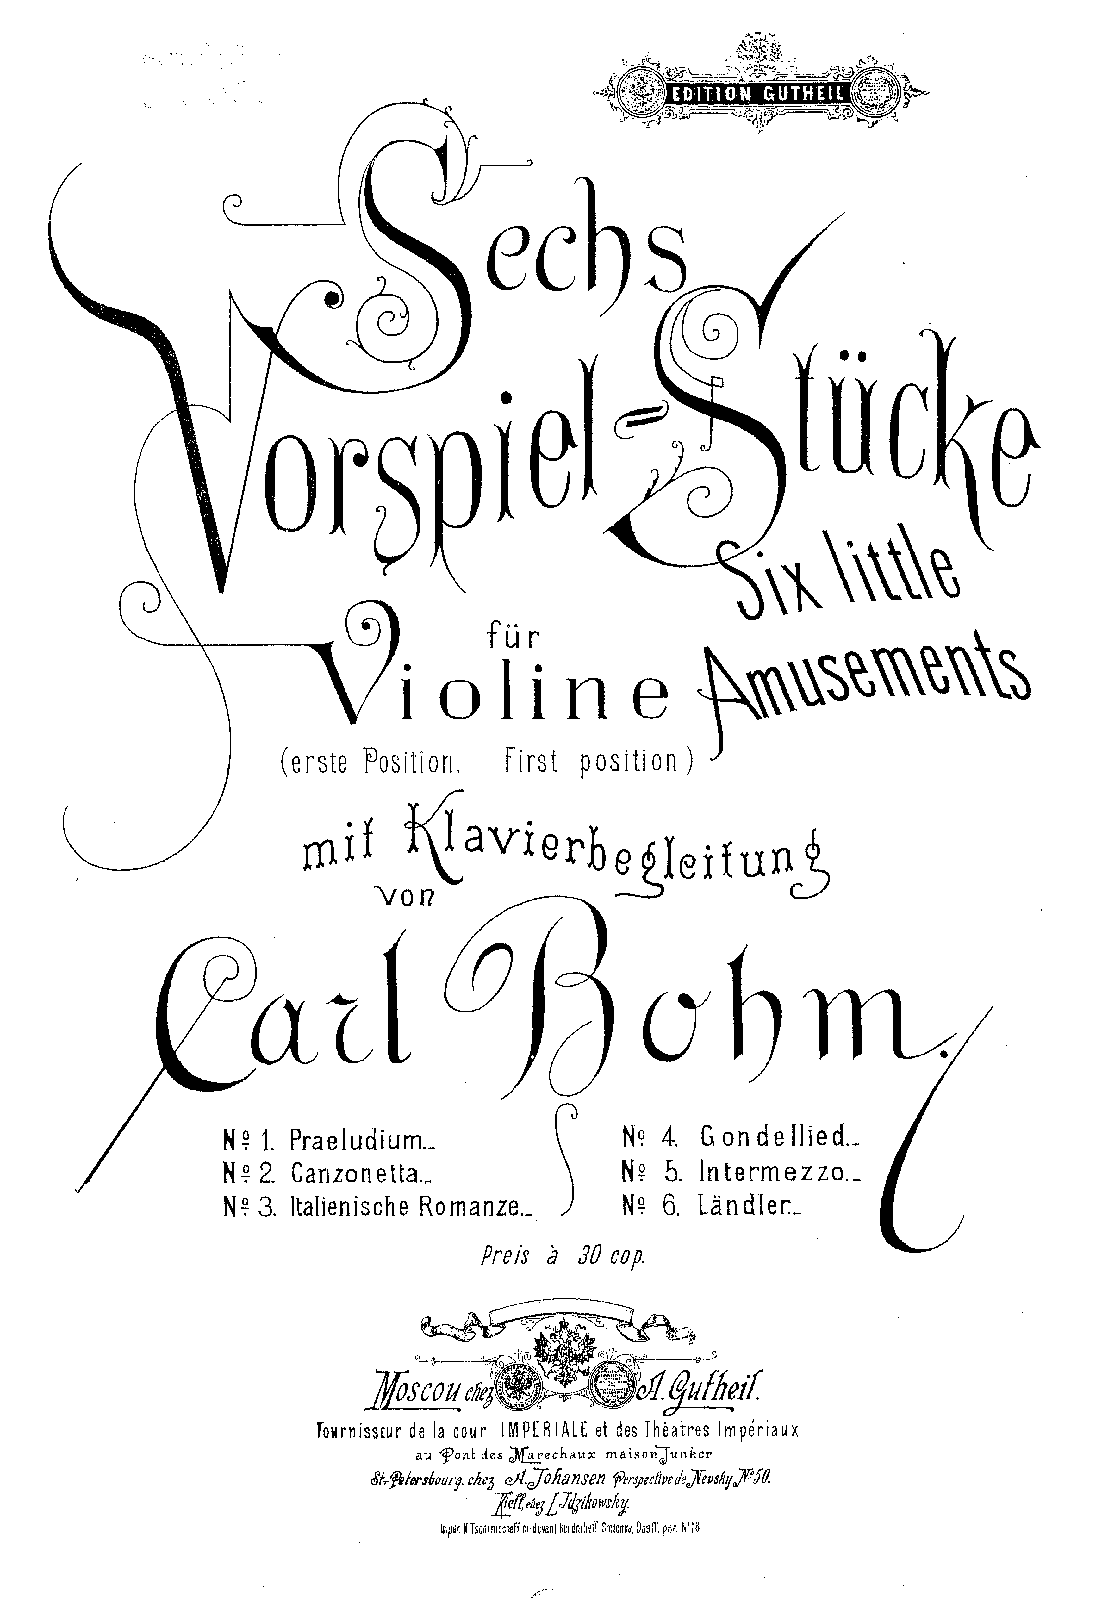 EDITION GUTHEIL
Sechs
Vorspiel-Stücke
Six little
Amusements
für
Violine
(erste Position. First position)
mit Klavierbegleitung
von
Carl Bohm.
No 1. Praeludium._
No 2. Canzonetta._
No 3. Italienische Romanze._
No 4. Gondellied._
No 5. Intermezzo._
No 6. Ländler._
Preis à 30 cop.
Moscou chez A. Gutheil.
Fournisseur de la cour IMPERIALE et des Théatres Impériaux
au Pont des Marechaux maison Junker
St-Petersbourg. chez A. Johansen Perspective de Nevsky No 50.
Kieff, chez L. Idzikowsky.